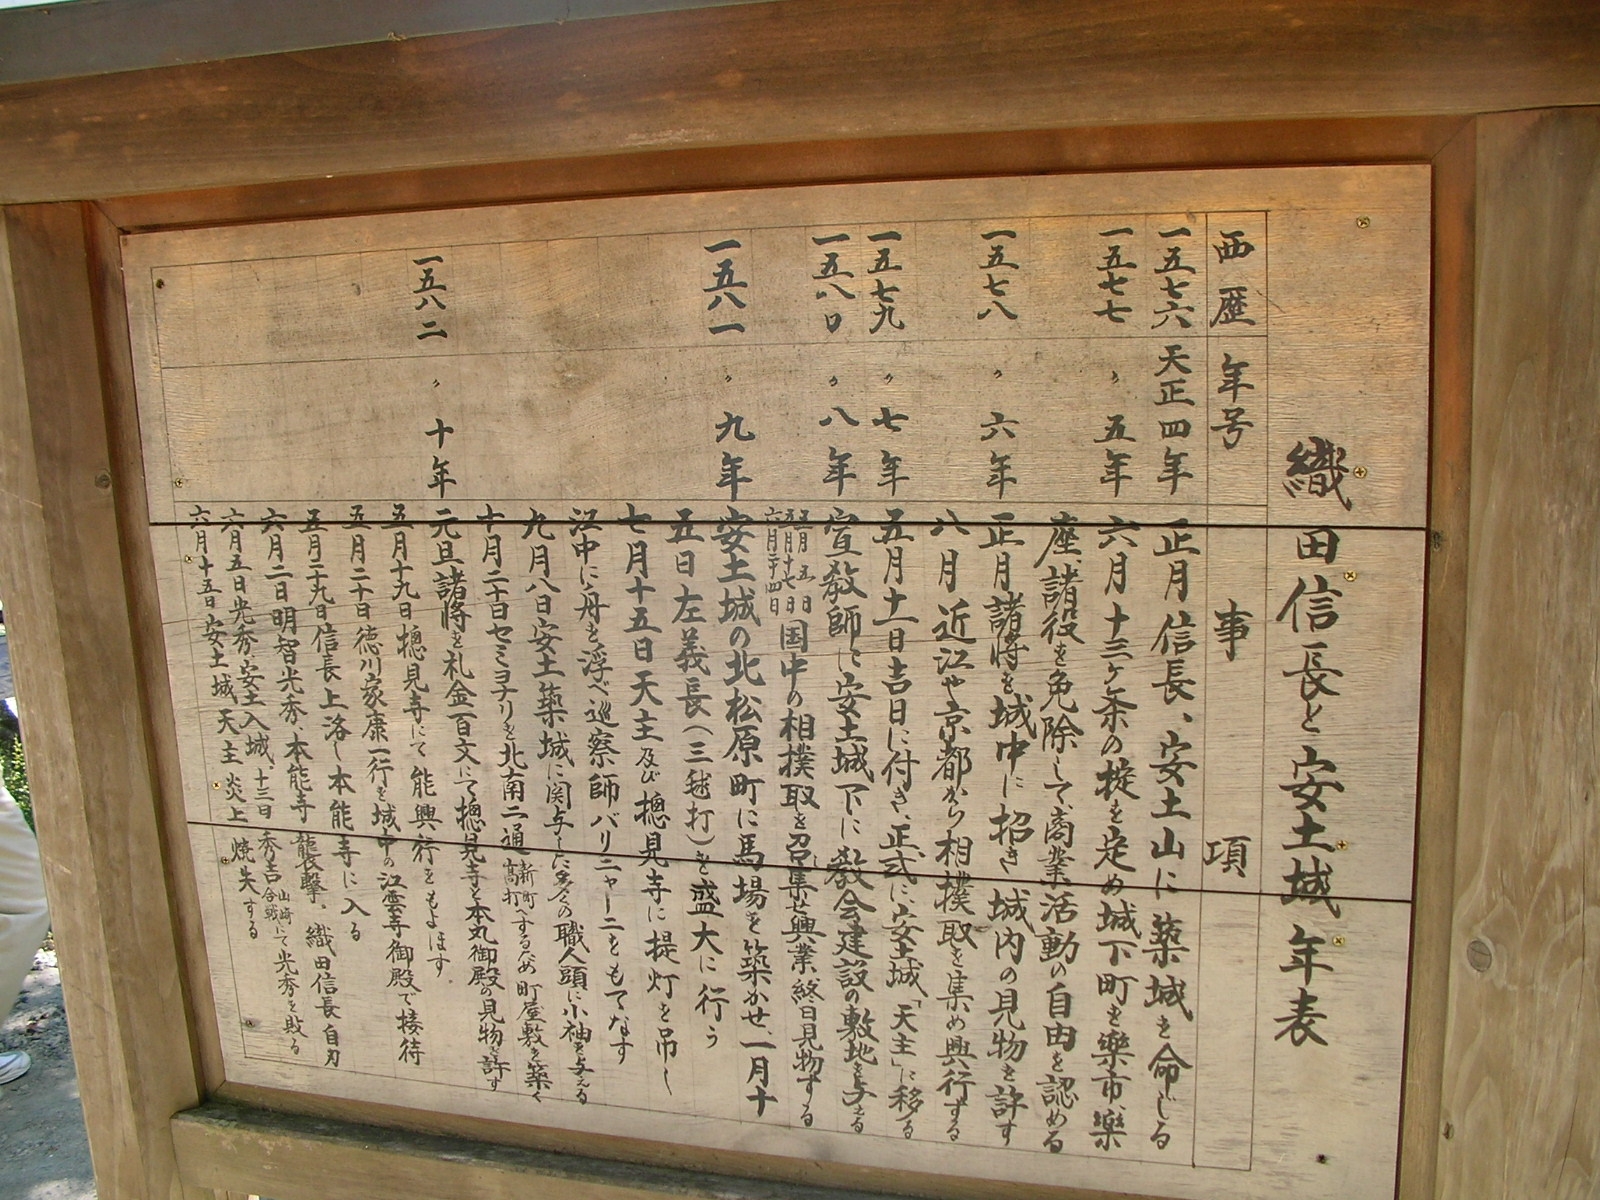 織田信長と安土城年表
西歴 年号 事項
一五七六 天正四年 正月 信長、安土山に築城を命じる
一五七七 〃 五年 六月十三ヶ条の掟を定め城下町を楽市、楽
座、諸役を免除して、商業活動の自由を認める
一五七八 〃 六年 正月諸将を城中に招き 城内の見物を許す
八月 近江や京都から相撲取を集め興行する
一五七九 〃 七年 五月十一日吉日に付き、正式に安土城「天主」に移る
一五八〇 〃 八年 宣教師に安土城下に教会建設の敷地を与える
五月 五日
五月十七日
六月二十四日
国中の相撲取を召し集せ興業終日見物する
一五八一 〃 九年 安土城の北松原町に馬場を築かせ、一月十
五日左義長(三毬打)を盛大に行う
七月十五日天主及び摠見寺に提灯を吊し
江中に舟を浮べ巡察師バリニャーニをもてなす
九月八日安土築城に関与した多くの職人頭に小袖を与える
十月二十日セミヨナリを北南二通
新町
高打
へするため 町屋敷を築く
一五八二 〃 十年 元旦諸将を礼金百文にて摠見寺と本丸御殿の見物を許す
五月十九日摠見寺にて能興行をもよほす
五月二十日徳川家康一行を城中の江雲寺御殿で接待
五月二十九日信長上洛し本能寺に入る
六月二日明智光秀本能寺龍襲撃、織田信長自刃
六月五日光秀安土入城 十三日 秀吉山崎合戦にて光秀を敗る
六月十五日安土城天主炎上 焼失する